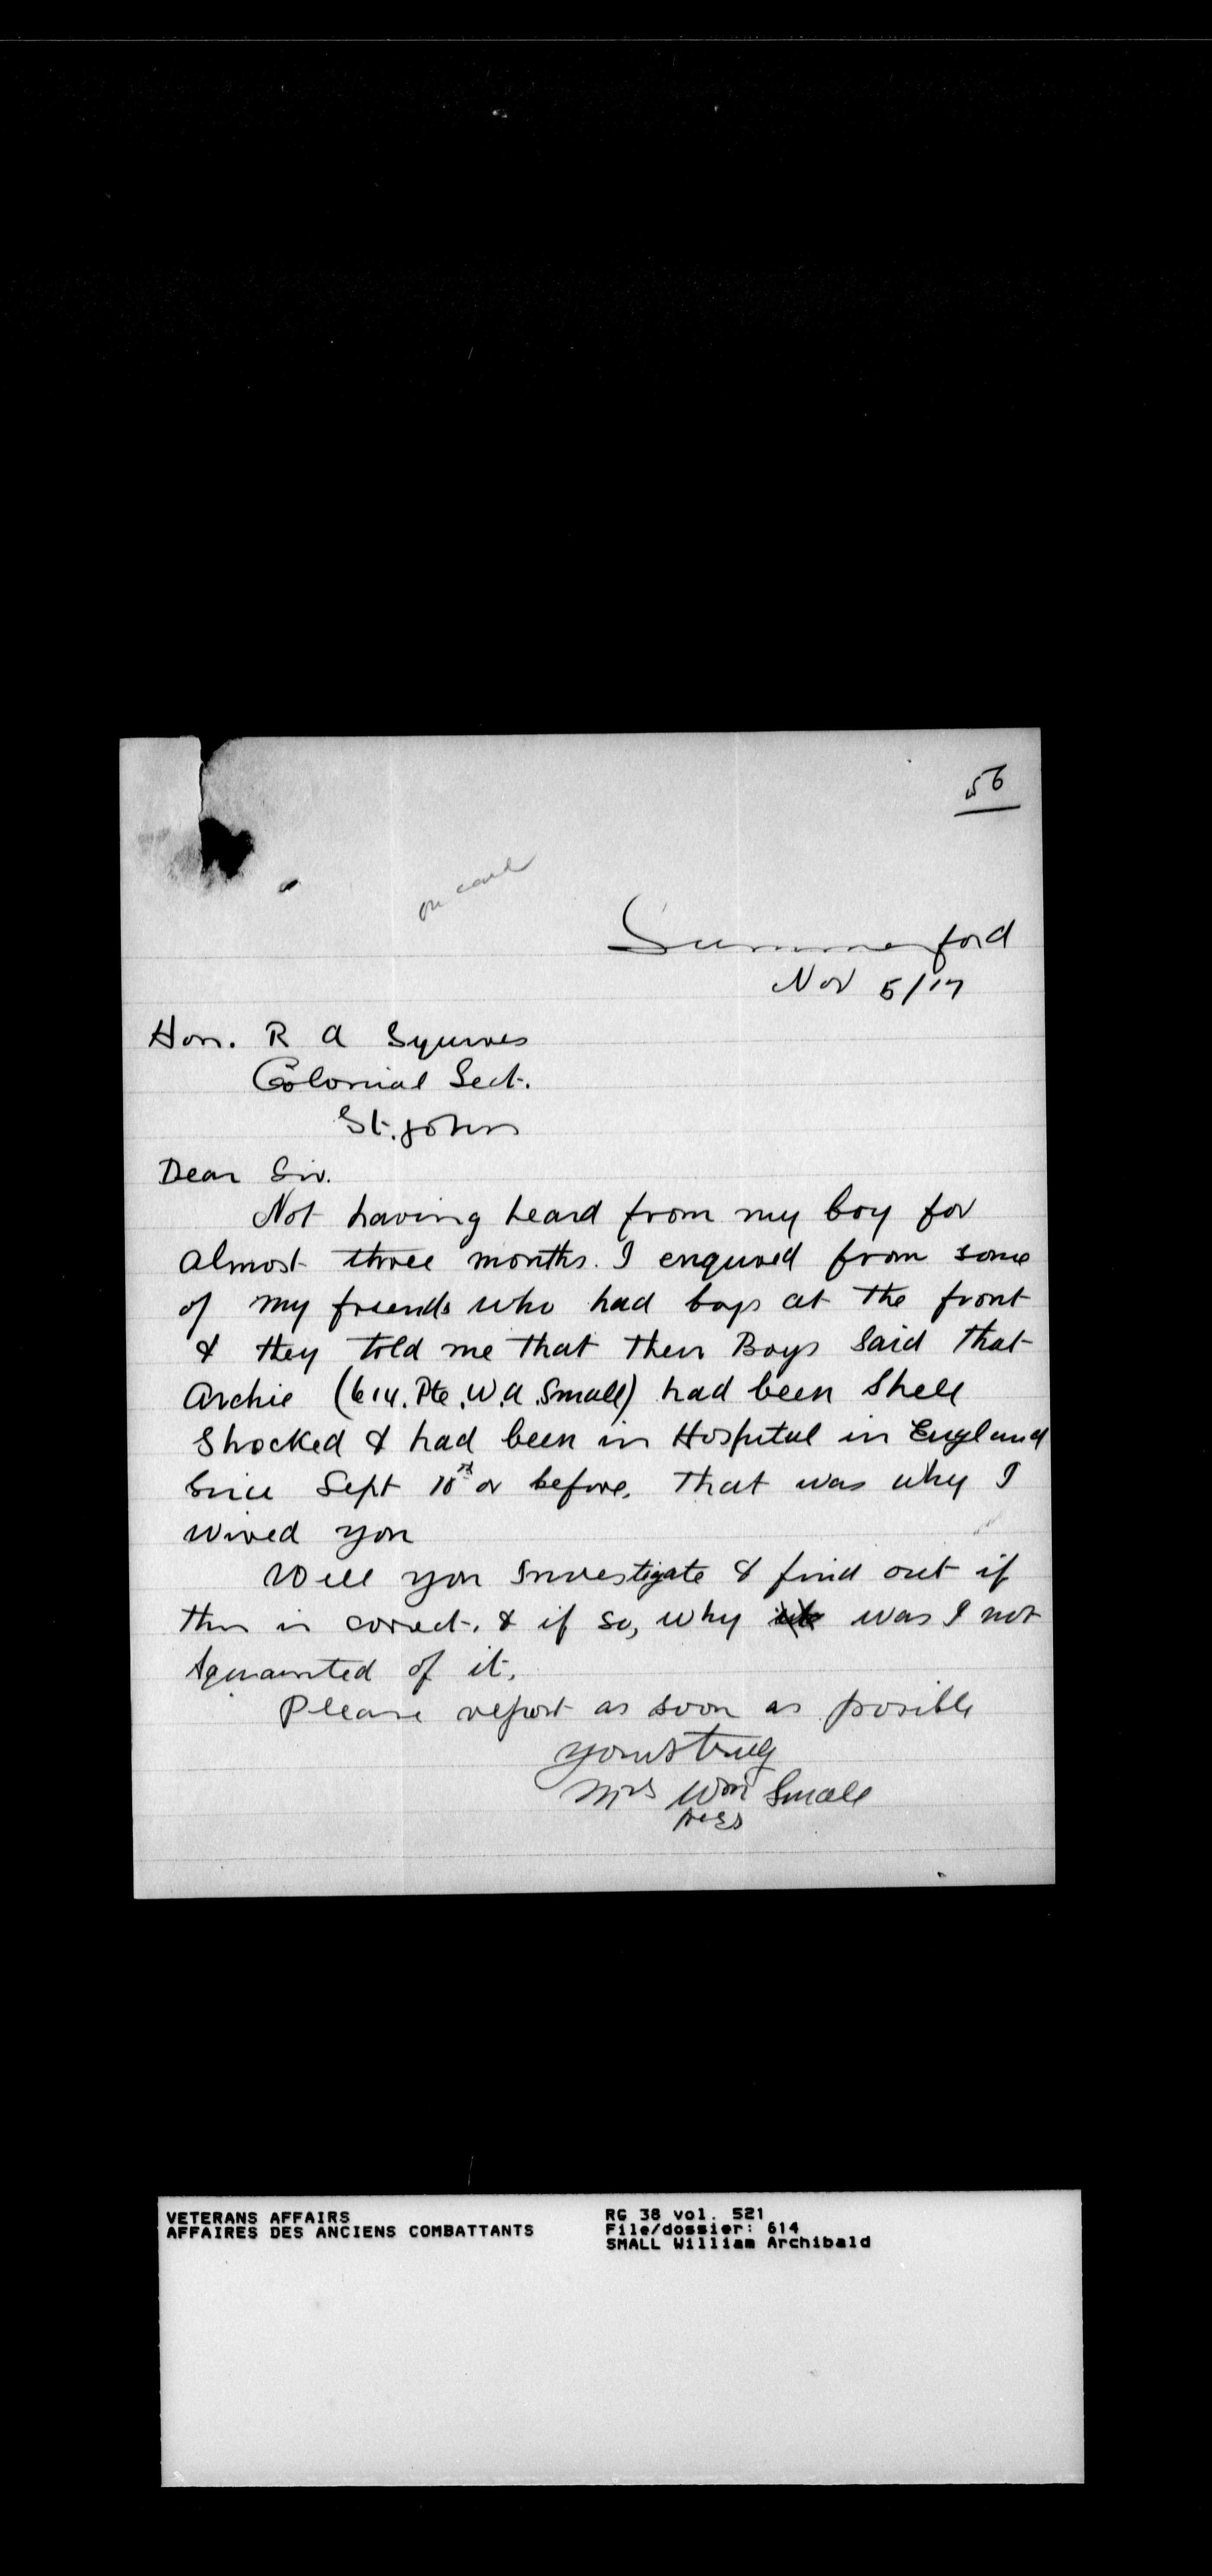 56
on card
Summerford
Nov 5/17
Hon. R A Squires
Colonial Sect.
St. Johns
Dear Sir.
Not having heard from my boy for
almost three months. I enquired from some
of my friends who had boys at the front
& they told me that their Boys Said that
Archie (614. Pte. W. A. Small) had been Shell
Shocked & had been in Hospital in England
Since Sept 10th or before. that was why I
wired you
Will you Investigate & find out if
this is correct. & if so, why was I not
Aquainted of it.
Please report as soon as posible
yours truly
Mrs Wm Small
VETERANS AFFAIRS
AFFAIRES DES ANCIENS COMBATTANTS
RG 38 vol. 521
File/dossier: 614
SMALL William Archibald